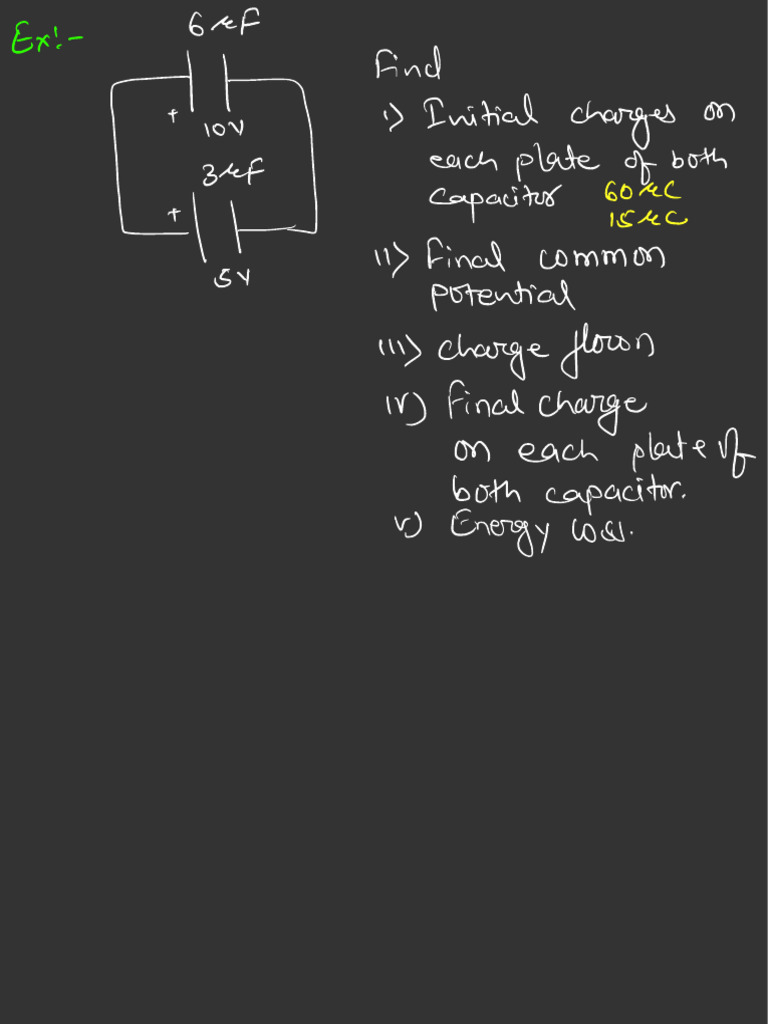 Ex:-
6 μF
+
10V
3μF
+
5V
Find
i) Initial charges on
each plate of both
capacitor 60 μC
15 μC
ii) Final common
potential
iii) charge flown
iv) Final charge
on each plate of
both capacitor.
v) Energy loss.